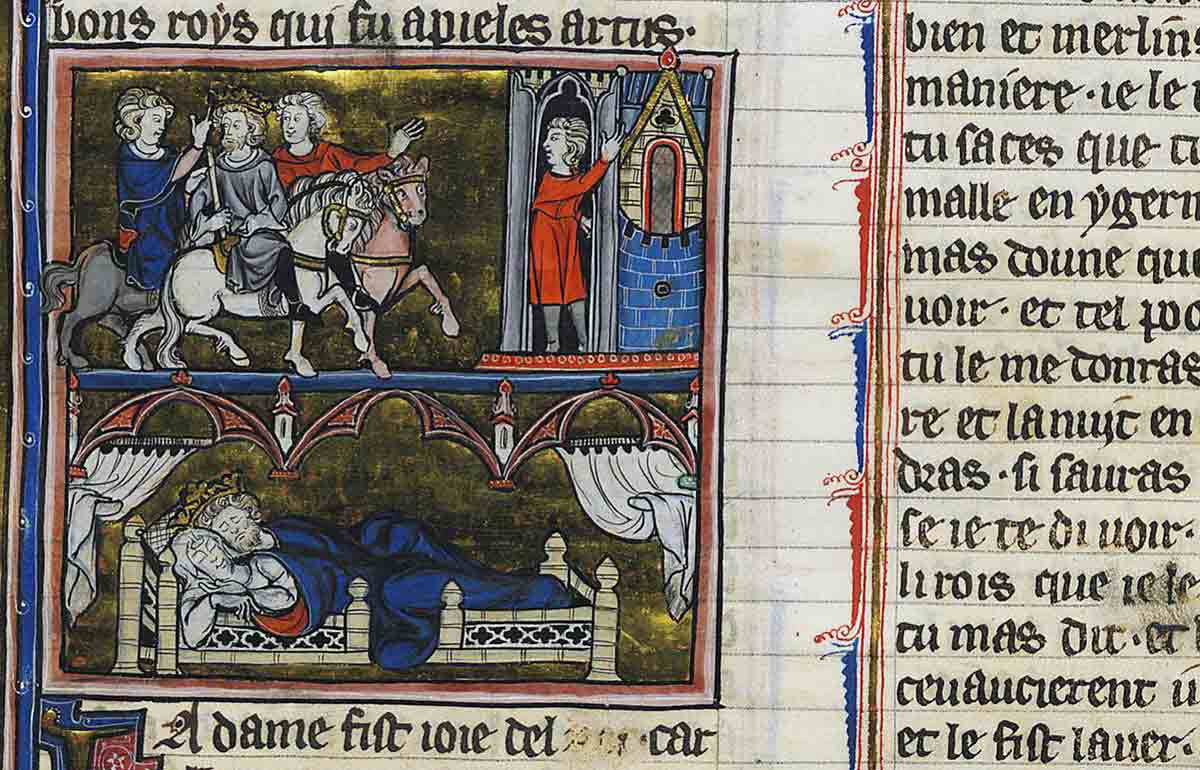 bons roys qui fu apieles artus.
A dame fist ioie del car
bien et merlins
maniere · ie le
tu saces que tu
malle en ygern
mas doune que
uoir · et tel poo
tu le me donras
re et la nuit en
dras · si sauras
se ie te di uoir ·
li rois que ie le
tu mas dit · et
ceuaucierent
et le fist lauer ·